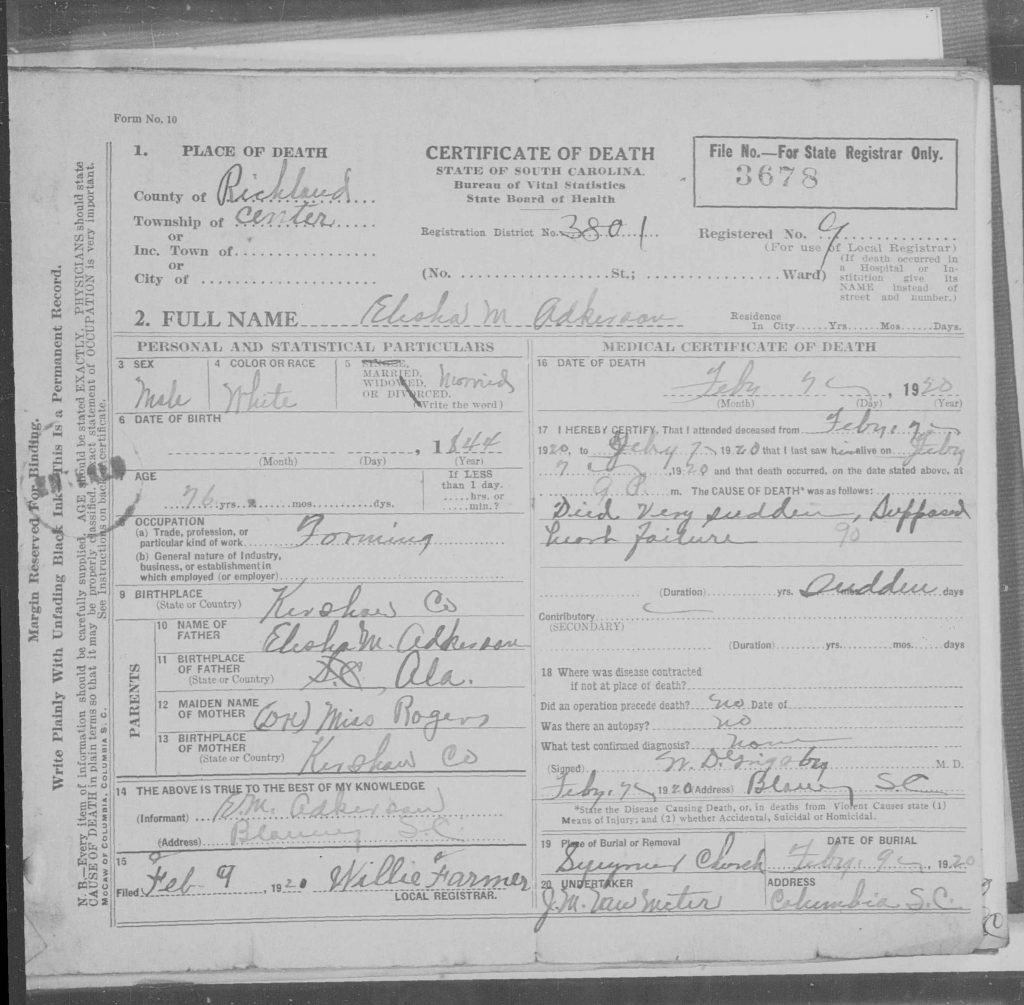 Form No. 10
1. PLACE OF DEATH
County of Richland
Township of Center
or
Inc. Town of
or
City of
CERTIFICATE OF DEATH
STATE OF SOUTH CAROLINA.
Bureau of Vital Statistics
State Board of Health
Registration District No. 3801
(No. St.; Ward)
File No.—For State Registrar Only.
3678
Registered No. 9
(For use of Local Registrar)
(If death occurred in
a Hospital or In-
stitution give its
NAME instead of
street and number.)
2. FULL NAME Elisha M Adkerson
Residence
In City Yrs. Mos. Days.
PERSONAL AND STATISTICAL PARTICULARS
3 SEX
Male
4 COLOR OR RACE
White
5 SINGLE,
MARRIED,
WIDOWED,
OR DIVORCED.
(Write the word)
Married
6 DATE OF BIRTH
, 1844
(Month) (Day) (Year)
7 AGE
76 yrs. mos. dys.
If LESS
than 1 day.
hrs. or
min.?
8 OCCUPATION
(a) Trade, profession, or
particular kind of work Farming
(b) General nature of Industry,
business, or establishment in
which employed (or employer)
9 BIRTHPLACE
(State or Country) Kershaw Co
PARENTS
10 NAME OF
FATHER Elisha M. Adkerson
11 BIRTHPLACE
OF FATHER
(State or Country) S.C, Ala.
12 MAIDEN NAME
OF MOTHER Miss Rogers
13 BIRTHPLACE
OF MOTHER
(State or Country) Kershaw Co
14 THE ABOVE IS TRUE TO THE BEST OF MY KNOWLEDGE
(Informant) E.M. Adkerson
(Address) Blaney S.C.
15
Filed Feb 9, 1920 Willie Farmer
LOCAL REGISTRAR.
MEDICAL CERTIFICATE OF DEATH
16 DATE OF DEATH
Feby 7, 1920
(Month) (Day) (Year)
17 I HEREBY CERTIFY, That I attended deceased from Feby. 7
1920, to Feby 7 1920 that I last saw him alive on Feby
7, 1920 and that death occurred, on the date stated above, at
9 P. m. The CAUSE OF DEATH* was as follows:
Died very sudden, Supposed
heart failure 90
(Duration) yrs. sudden days
Contributory
(SECONDARY)
(Duration) yrs. mos. days
18 Where was disease contracted
if not at place of death?
Did an operation precede death? no Date of
Was there an autopsy? no
What test confirmed diagnosis? none
(Signed) W. D. Grigsby M. D.
Feby. 7, 1920 (Address) Blaney S.C.
*State the Disease Causing Death, or, in deaths from Violent Causes state (1)
Means of Injury; and (2) whether Accidental, Suicidal or Homicidal.
19 Place of Burial or Removal
Church
DATE OF BURIAL
Feby. 9, 1920
20 UNDERTAKER
J.M. Van Meter
ADDRESS
Columbia S.C.
Margin Reserved For Binding.
Write Plainly With Unfading Black Ink—This Is a Permanent Record.
N. B.—Every item of information should be carefully supplied. AGE should be stated EXACTLY. PHYSICIANS should state
CAUSE OF DEATH in plain terms so that it may be properly classified. Exact statement of OCCUPATION is very important.
See Instructions on back of certificate.
McCAW OF COLUMBIA, COLUMBIA S. C.